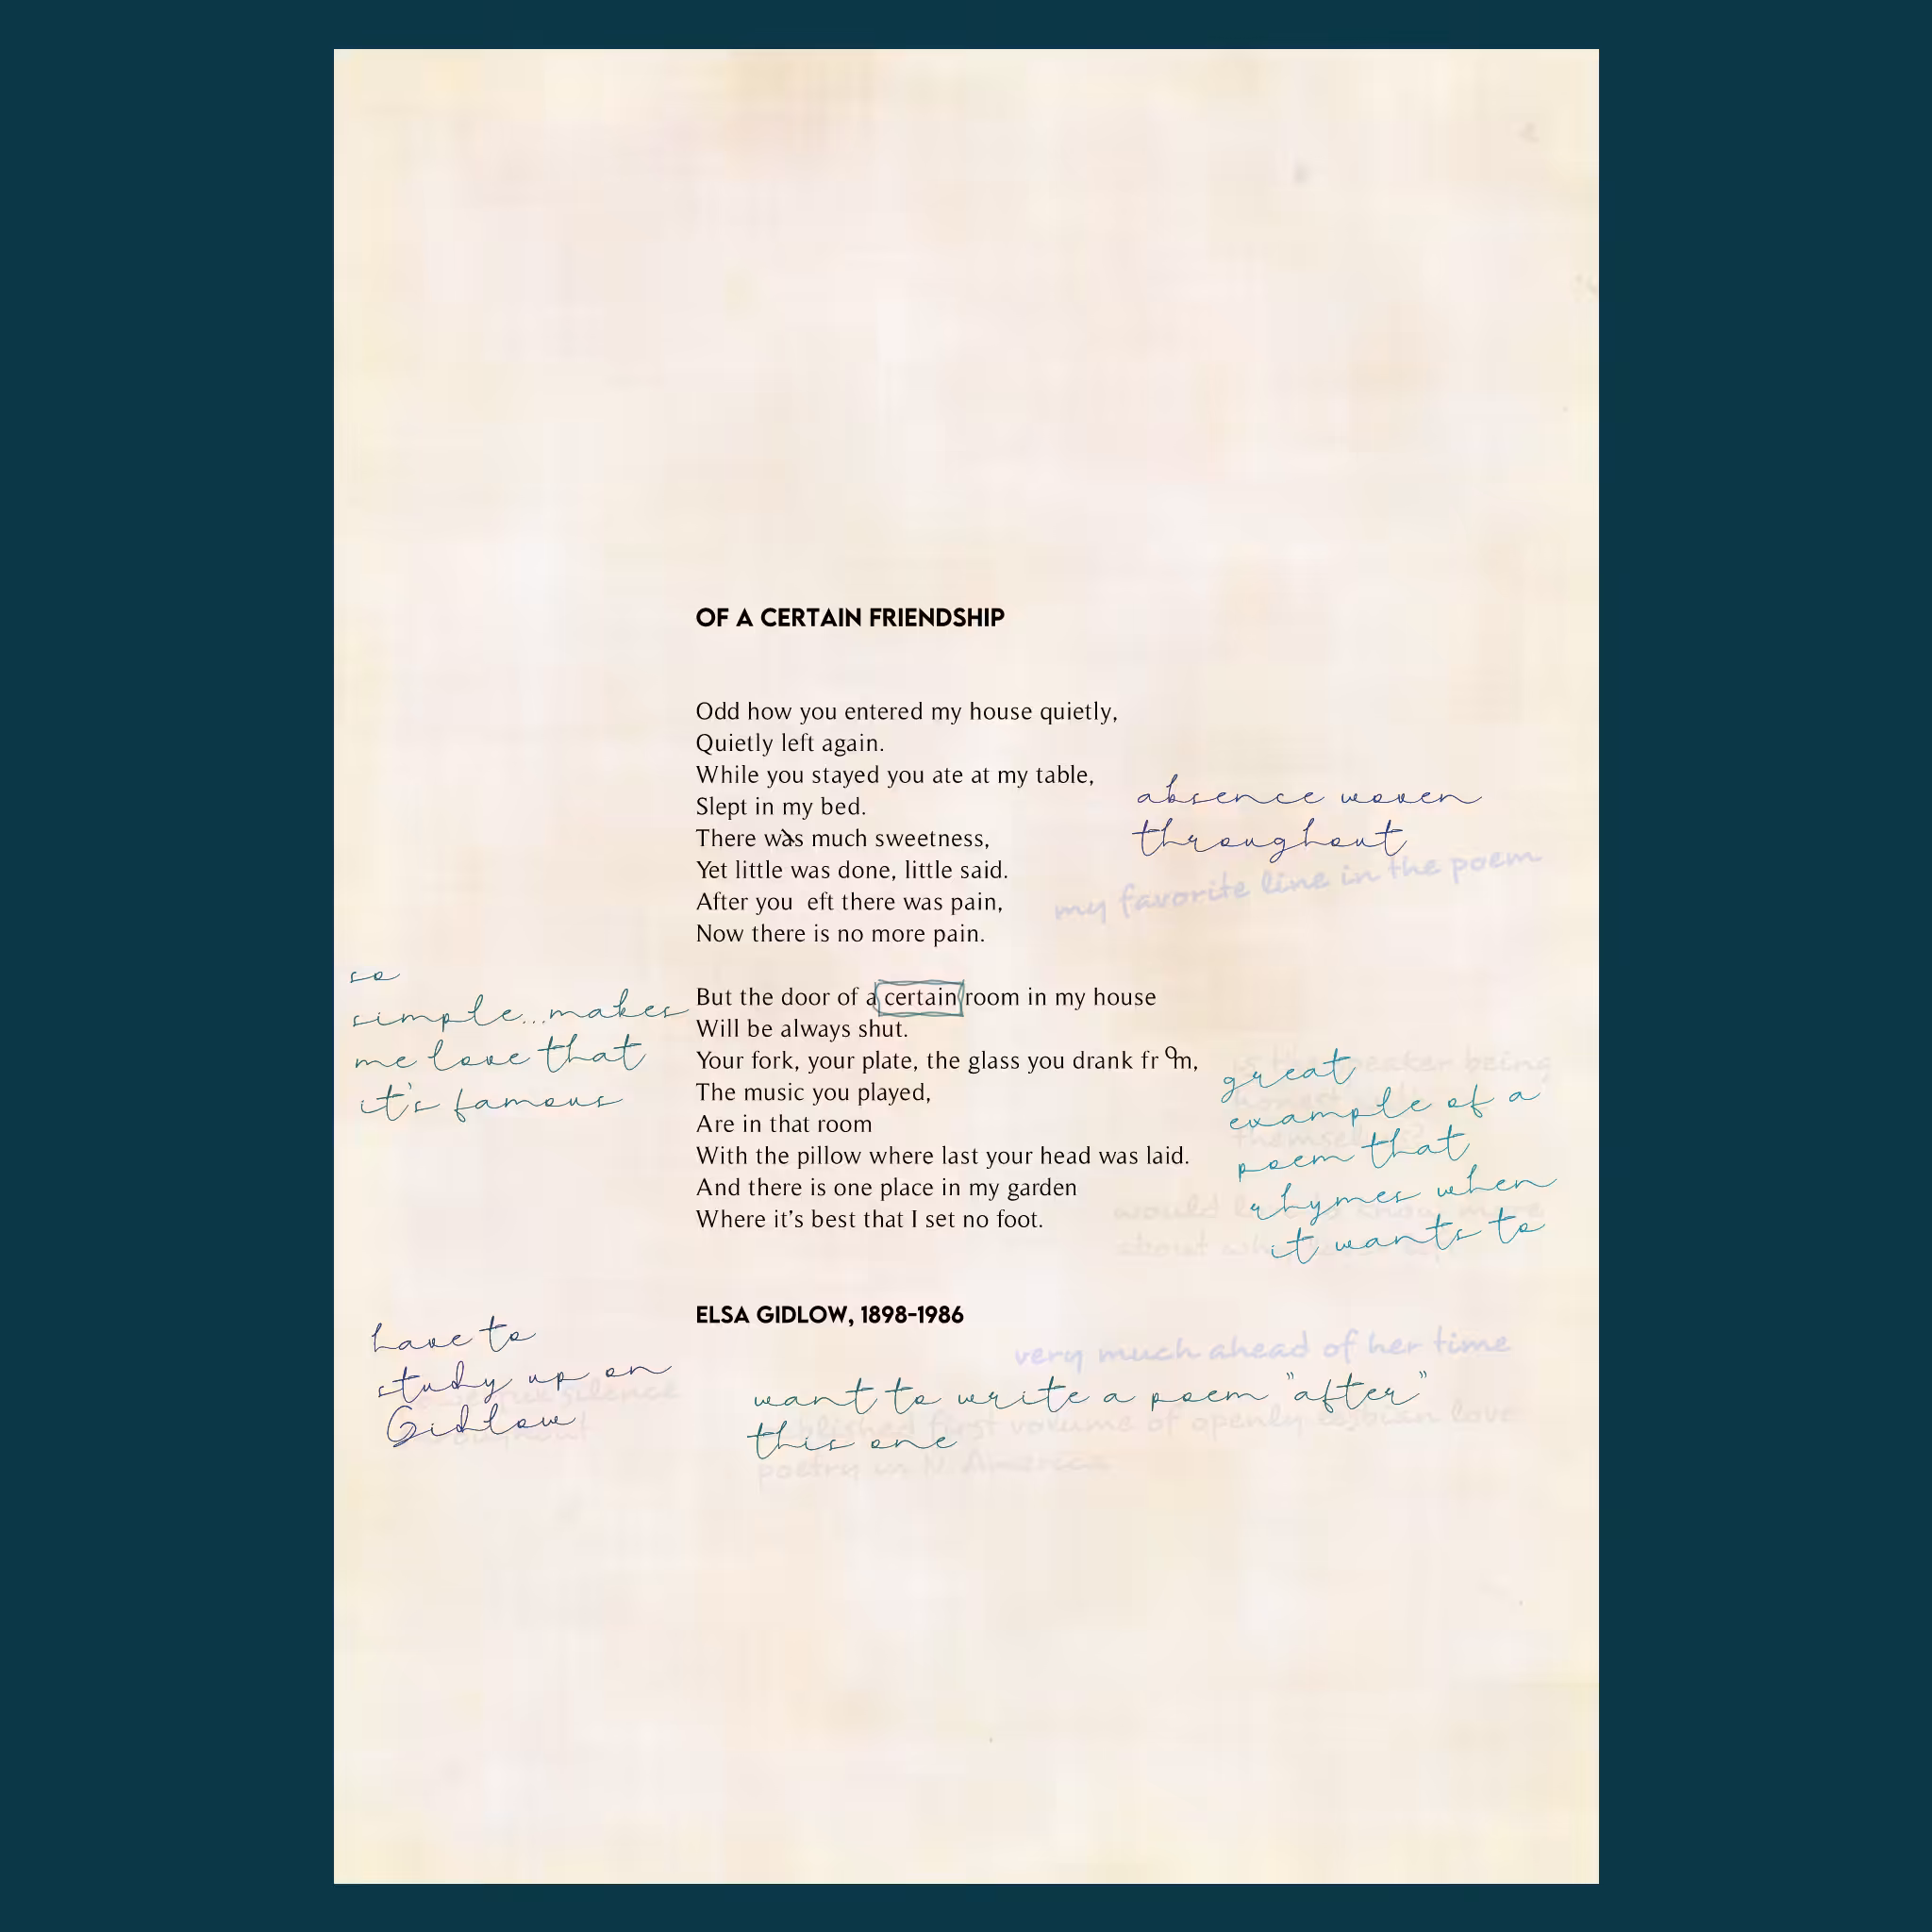 OF A CERTAIN FRIENDSHIP
Odd how you entered my house quietly,
Quietly left again.
While you stayed you ate at my table,
Slept in my bed.
There was much sweetness,
Yet little was done, little said.
After you eft there was pain,
Now there is no more pain.
absence woven
throughout
my favorite line in the poem
But the door of a certain room in my house
Will be always shut.
Your fork, your plate, the glass you drank from,
The music you played,
Are in that room
With the pillow where last your head was laid.
And there is one place in my garden
Where it's best that I set no foot.
so
simple...makes
me love that
it's famous
is the speaker being
themselves?
great
example of a
poem that
rhymes when
it wants to
would love to know more
about
ELSA GIDLOW, 1898-1986
have to
study up on
Gidlow
silence
throughout
very much ahead of her time
want to write a poem "after"
this one
published first volume of openly lesbian love
poetry in N. America